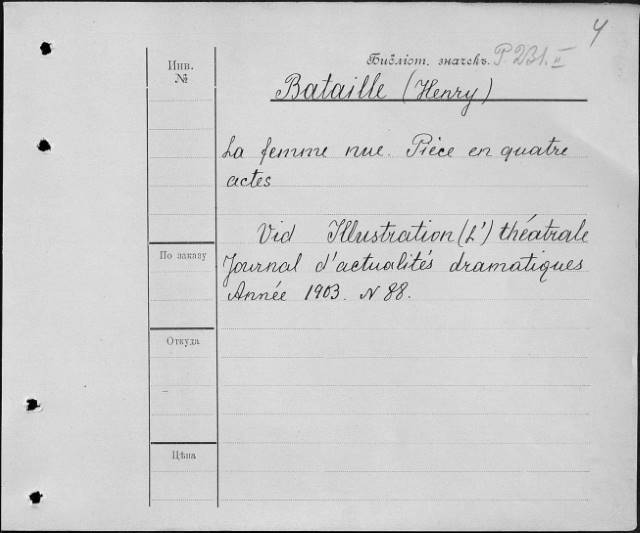 4
Инв. №
Библіот. значекъ. P. 231. II
Bataille (Henry)
La femme nue. Pièce en quatre
actes
Vid Illustration (L') théatrale
Journal d'actualités dramatiques
Année 1903. N 88.
По заказу
Откуда
Цѣна